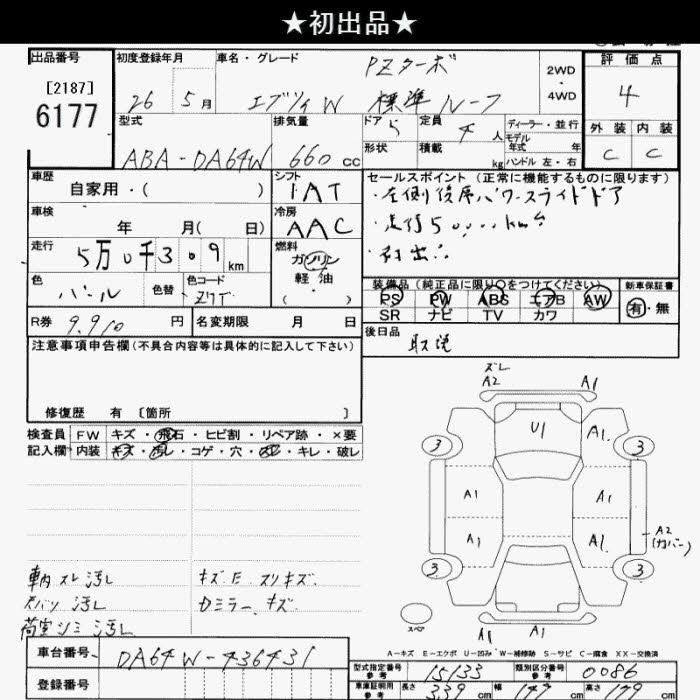 ★初出品★
出品番号
[2187]
6177
初度登録年月
26 5月
車名・グレード
PZターボ
エブリィW 標準ルーフ
2WD
4WD
評価点
4
外装 内装
C C
型式
ABA-DA64W
排気量
660 cc
ドア 5
形状
定員 4人
積載 kg
ディーラー・並行
モデル年式 年
ハンドル 左・右
車歴
自家用・( )
シフト
IAT
車検
年 月( 日)
冷房
AAC
走行
5万0千309km
燃料
ガソリン
軽油
( )
色
パール
色替
色コード
Z7T
R券 9,910円
名変期限 月 日
セールスポイント(正常に機能するものに限ります)
・左側後席パワースライドドア
・走行50,000km台
・初出品
装備品(純正品に限り○をつけてください)
PS PW ABS エアB AW
SR ナビ TV カワ
新車保証書
有・無
後日品
取説
注意事項申告欄(不具合内容等は具体的に記入して下さい)
修復歴 有〔箇所 〕
検査員 FW キズ・飛石・ヒビ割・リペア跡・×要
記入欄 内装 キズ・汚レ・コゲ・穴・・キレ・破レ
ズレ
A2 A1
U1 A1
3 3
A1 A1
A1 A1
A2
(カバー)
3 3
スペア
A1 A1
車内スレ汚レ
荷室シミ汚レ
キズE スリキズ
Dミラー キズ
A-キズ E-エクボ U-凹み W-補修跡 S-サビ C-腐食 XX-交換済
車台番号 DA64W-436431
登録番号
型式指定番号 参考 15133
類別区分番号 参考 0086
車庫証明用 参考 長さ 339cm 幅 147cm 高さ cm